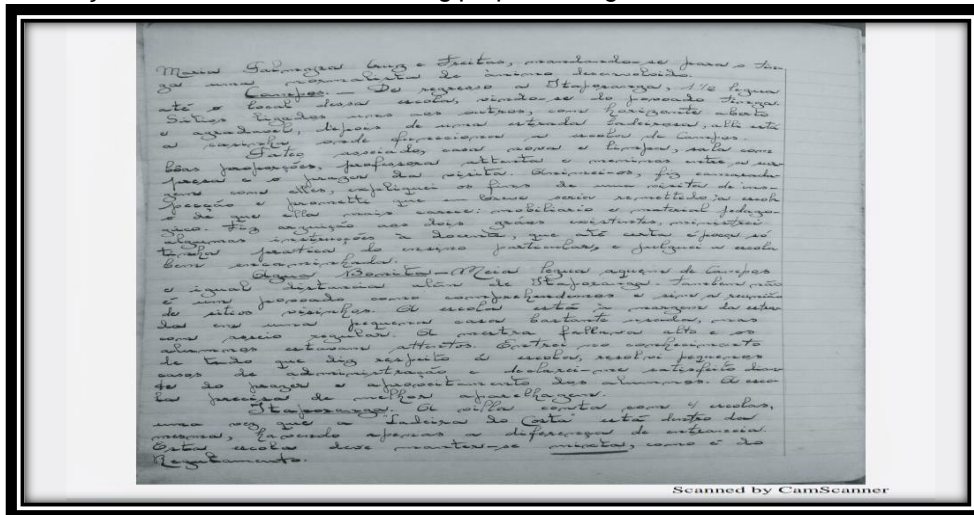 Maria Salmazia Cruz e Freitas, mandando-se para o Tin-
ga uma normalista de animo desenvolvido.
Campos. — De regresso a Itaporanga, 1 1/2 legua
até o local dessa escola, vindo-se do povoado Tinga.
Sitios ligados uns aos outros, com horizonte aberto
e agradavel, depois de uma estrada ladeirosa, alli está
a casinha onde funcciona a escola de Campos.
Fatto asseiado, casa nova e limpa, sala com
bôas proporções, professora attenta e meninos entre a sur-
presa e o prazer da visita. Animei-os, fiz camarada-
gem com elles, expliquei os fins de uma visita de ins-
pecção e prometti que em breve seria remettido á escola
o de que ella mais carece: mobiliario e material pedago-
gico. Fiz arguição aos dois gráos existentes, ministrei
algumas instrucções á docente, que até certa época só
tinha pratica do ensino particular, e julguei a escola
bem encaminhada.
Agua Bonita — Meia legua aquem de Campos
e igual distancia além de Itaporanga. Tambem não
é um povoado como comprehendemos e sim a reunião
de sitios visinhos. A escola está á margem da estra-
da em uma pequena casa bastante usada, mas
com asseio regular. A mestra fallava alto e os
alumnos estavam attentos. Entrei no conhecimento
de tudo que diz respeito á escola, resolvi pequenos
casos de administração e declarei-me satisfeito dian-
te do prazer e aproveitamento dos alumnos. A esco-
la precisa de melhor apparelhagem.
Itaporanga. A villa conta com 4 escolas,
uma vez que a Ladeira do Costa está dentro da
mesma, havendo apenas a differença de entrancia.
Esta escola deve manter-se mixta, como é do
Regulamento.
Scanned by CamScanner